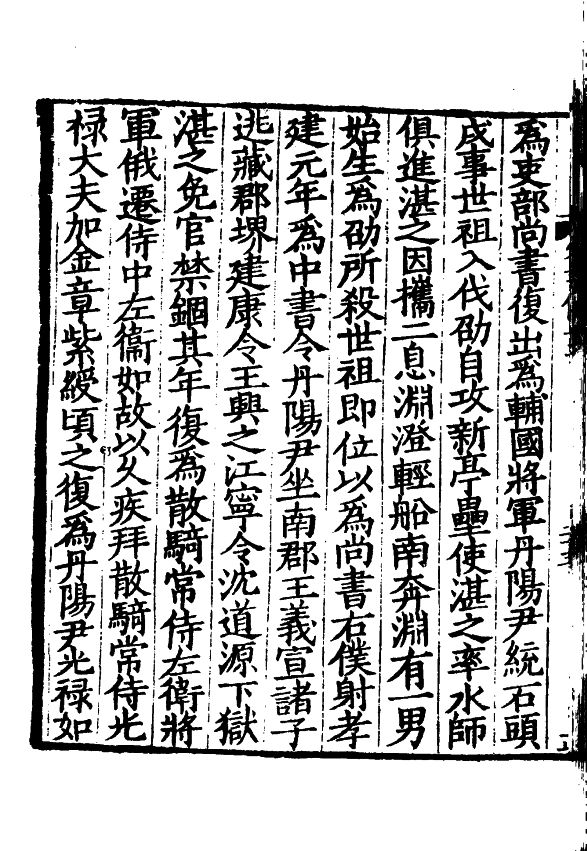 爲吏部尚書復出爲輔國將軍丹陽尹統石頭
戍事世祖入伐劭自攻新亭壘使湛之率水師
俱進湛之因攜二息淵澄輕船南奔淵有一男
始生爲劭所殺世祖即位以爲尚書右僕射孝
建元年爲中書令丹陽尹坐南郡王義宣諸子
逃藏郡堺建康令王興之江寧令沈道源下獄
湛之免官禁錮其年復爲散騎常侍左衛將
軍俄遷侍中左衞如故以久疾拜散騎常侍光
禄大夫加金章紫綬頃之復爲丹陽尹光禄如